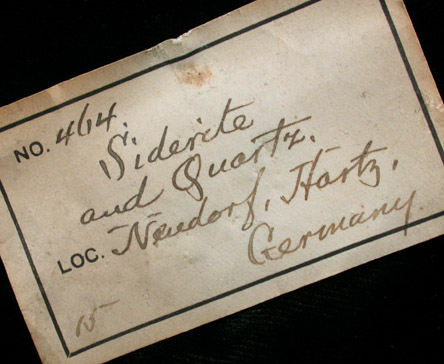 NO. 4614.
Siderite
and Quartz.
LOC. Neudorf, Hartz,
Germany.
15